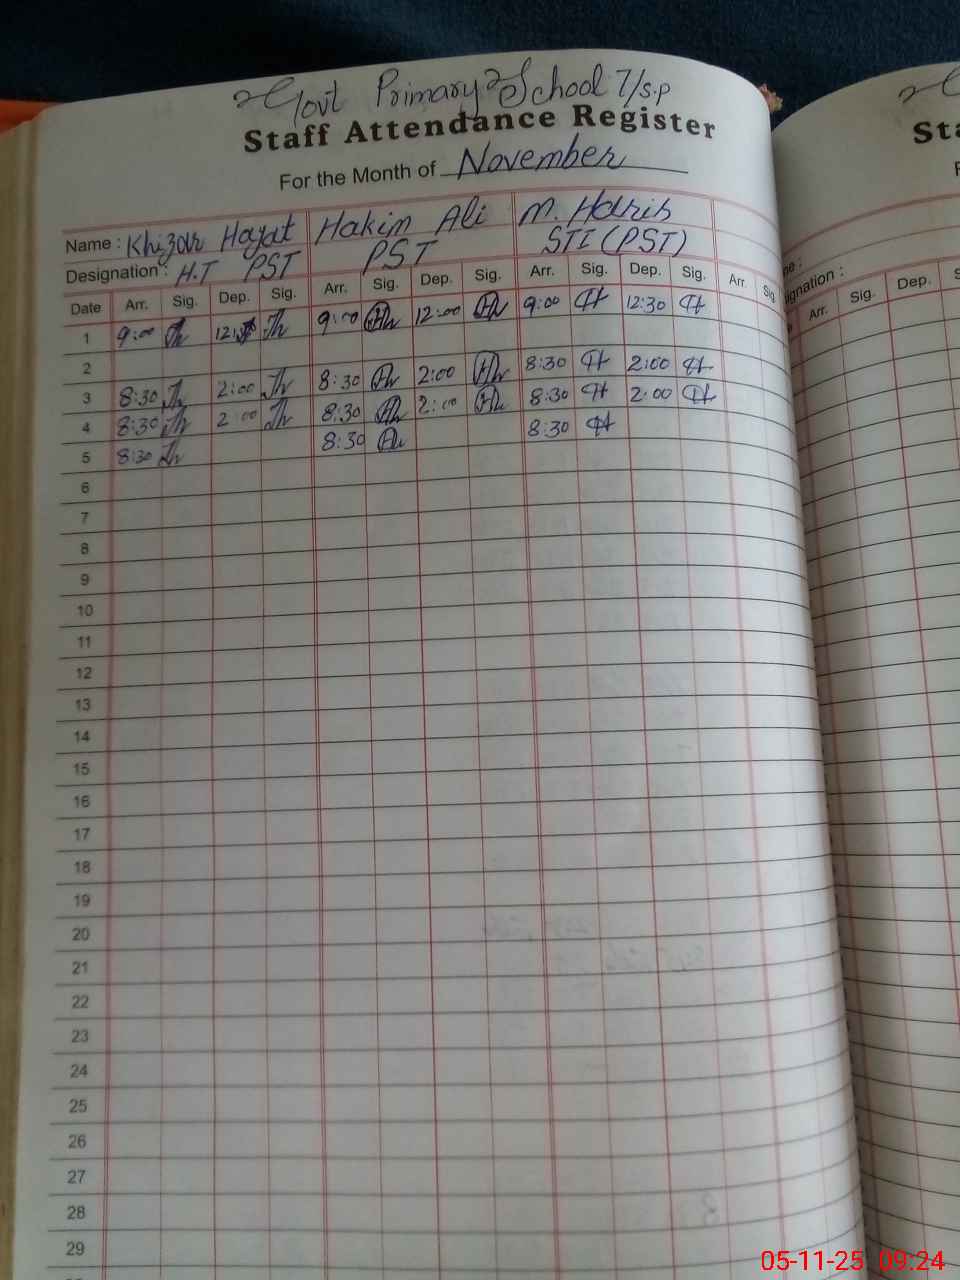 Govt Primary School 7/S.P
Staff Attendance Register
For the Month of November
Name : Khizar Hayat Hakim Ali M. Haris
Designation : H.T PST PST STI (PST)
Date Arr. Sig. Dep. Sig. Arr. Sig. Dep. Sig. Arr. Sig. Dep. Sig. Arr. Sig.
1 9:00 9:00 12:00 9:00 12:30
2
3 8:30 2:00 8:30 2:00 8:30 2:00
4 8:30 2:00 8:30 2:00 8:30 2:00
5 8:30 8:30 8:30
6
7
8
9
10
11
12
13
14
15
16
17
18
19
20
21
22
23
24
25
26
27
28
29
Sta
ignation :
Arr. Sig. Dep.
05-11-25 09:24